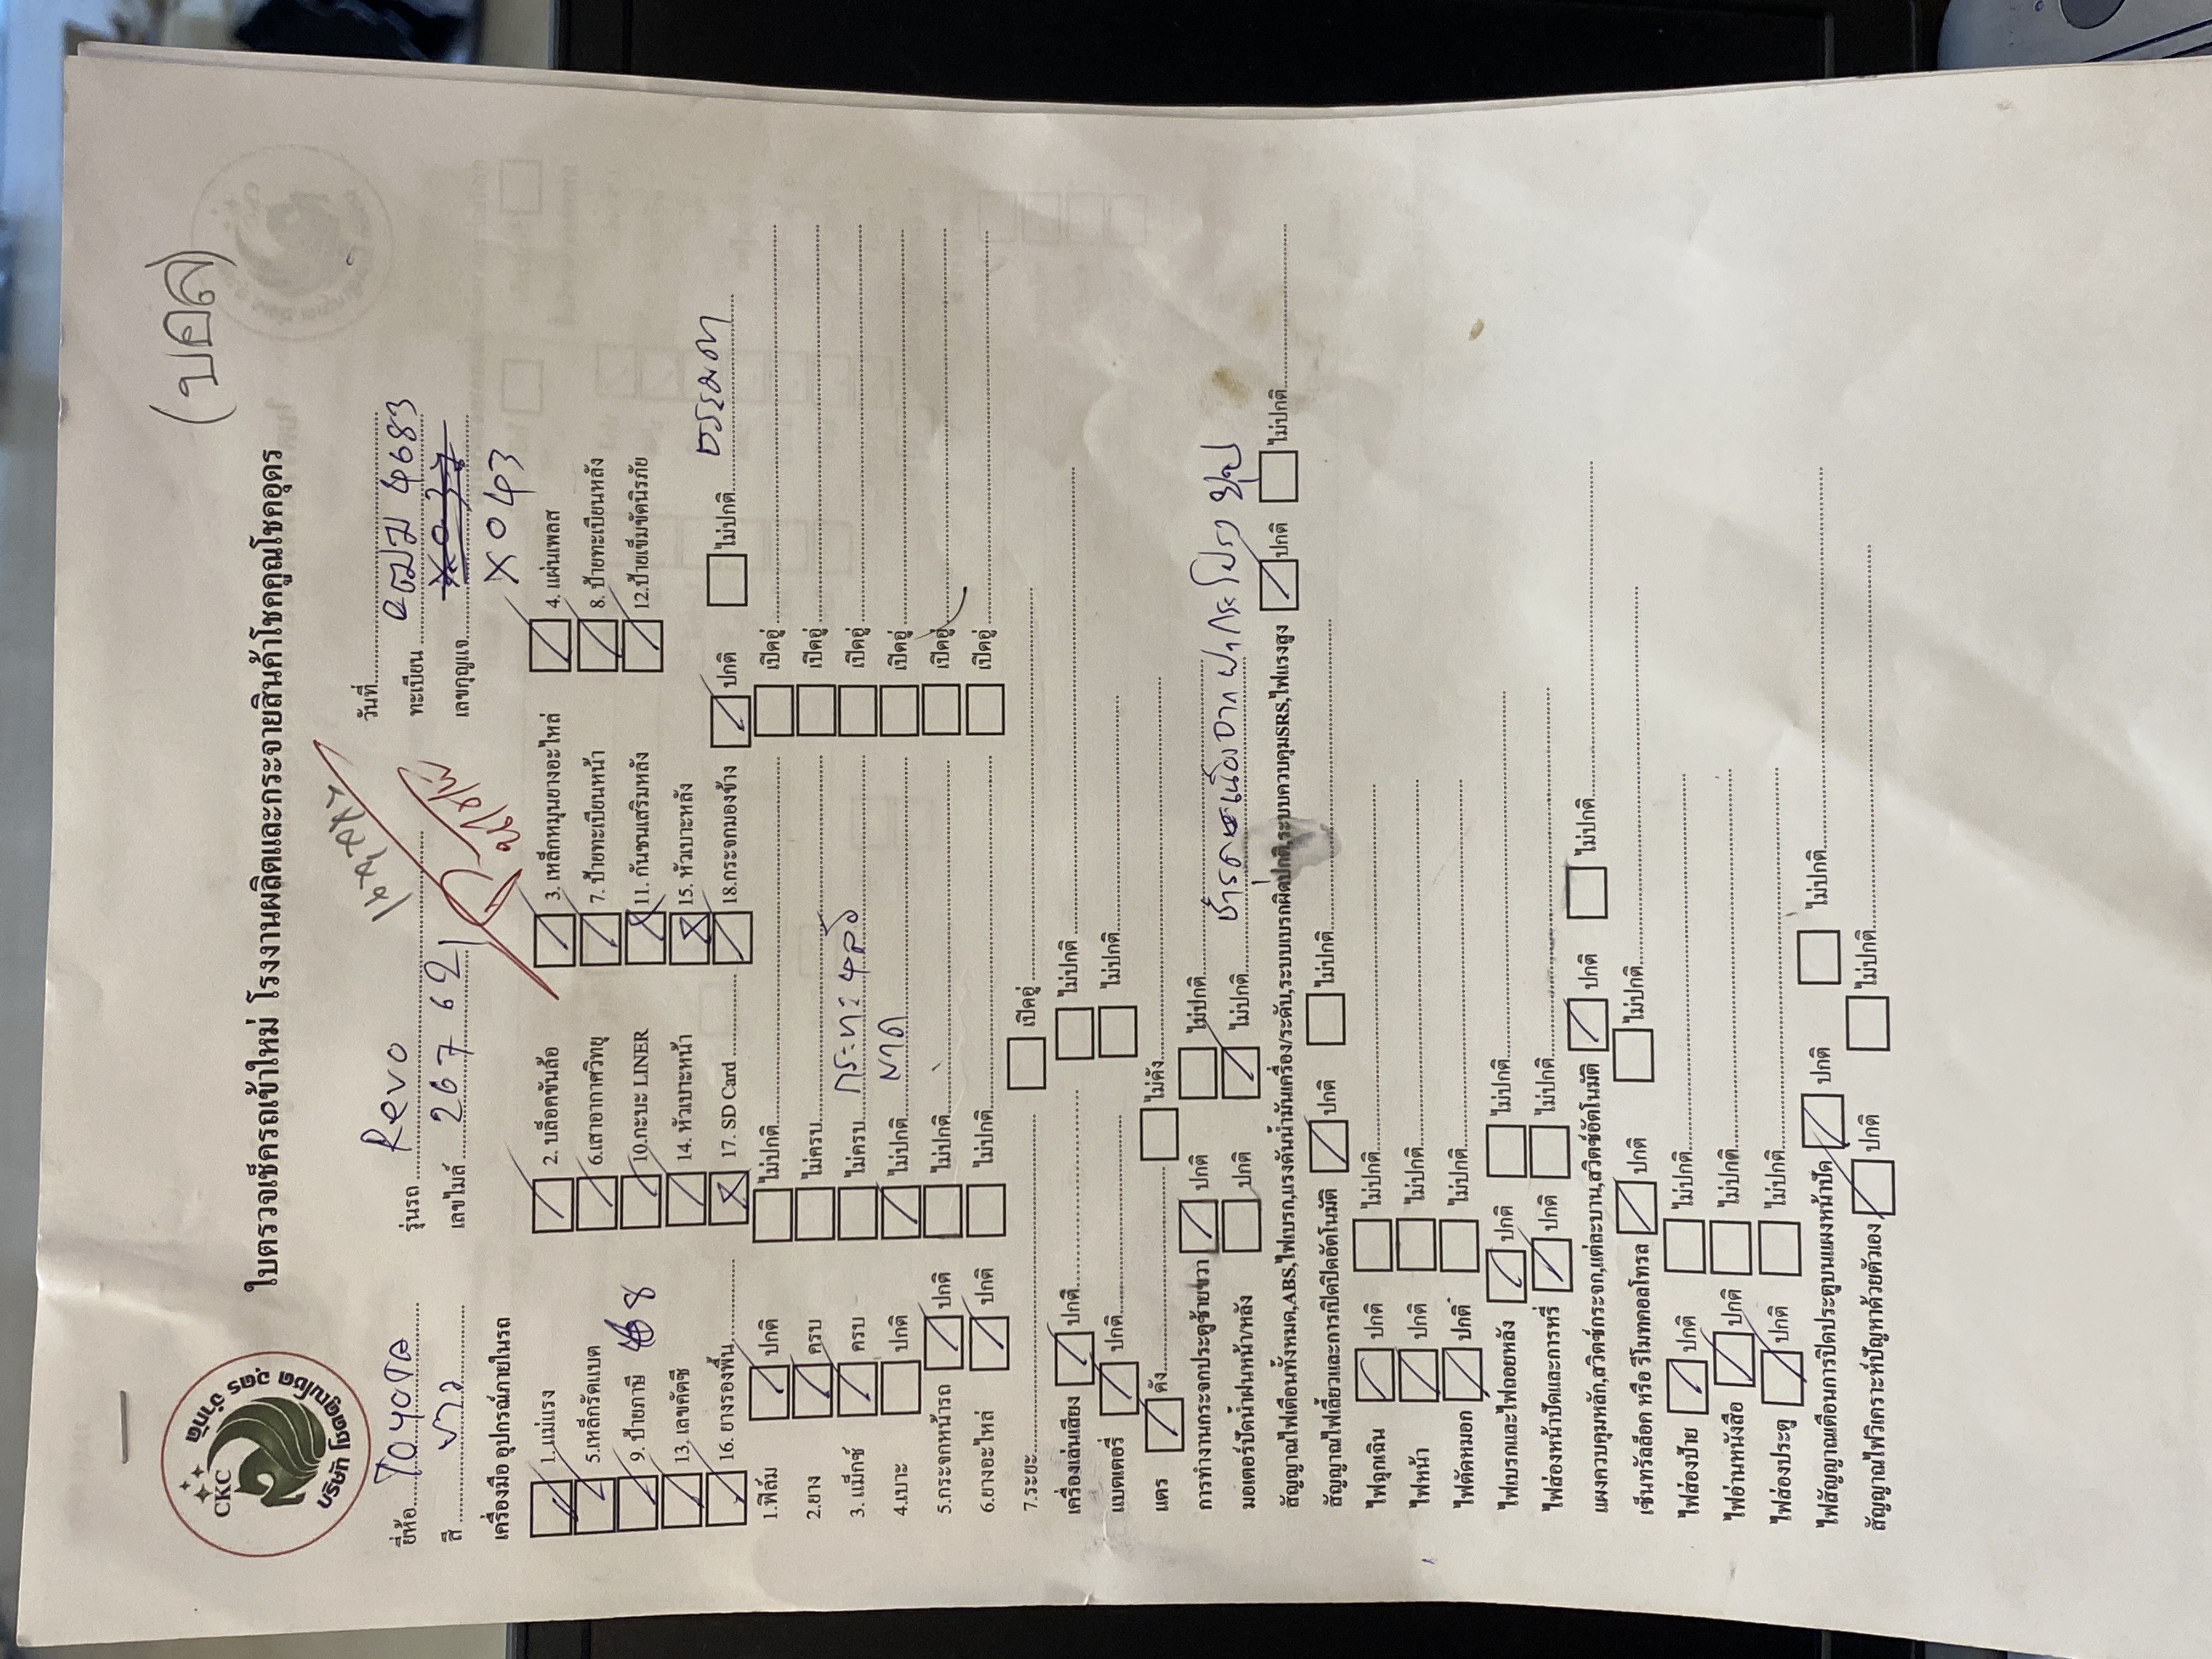 CKC
บริษัท โชคคูณโชค อุดร จำกัด
(บอล)
ใบตรวจเช็ครถเข้าใหม่ โรงงานผลิตและกระจายสินค้าโชคคูณโชคอุดร
วันที่
ยี่ห้อ Toyota รุ่นรถ Revo ทะเบียน 4683
สี ขาว เลขไมล์ 26762 เลขกุญแจ
X043
เครื่องมือ อุปกรณ์ภายในรถ
1.แม่แรง 2. บล็อคขันล้อ 3. เหล็กหมุนยางอะไหล่ 4. แผ่นเพลส
5.เหล็กรัดแบต 6.เสาอากาศวิทยุ 7. ป้ายทะเบียนหน้า 8. ป้ายทะเบียนหลัง
9. ป้ายภาษี 68 10.กะบะ LINER 11. กันชนเสริมหลัง 12.ป้ายเข็มขัดนิรภัย
13. เลขคัตซี 14. หัวเบาะหน้า 15. หัวเบาะหลัง
16. ยางรองพื้น 17. SD Card 18.กระจกมองข้าง ปกติ ไม่ปกติ ธรรมดา
1.ฟิล์ม ปกติ ไม่ปกติ เปิดอู่
2.ยาง ครบ ไม่ครบ เปิดอู่
3. แม็กซ์ ครบ ไม่ครบ กระทะ 4 ล้อ เปิดอู่
4.เบาะ ปกติ ไม่ปกติ ขาด เปิดอู่
5.กระจกหน้ารถ ปกติ ไม่ปกติ เปิดอู่
6.ยางอะไหล่ ปกติ ไม่ปกติ เปิดอู่
7.ระยะ เปิดอู่
เครื่องเล่นเสียง ปกติ ไม่ปกติ
แบตเตอรี่ ปกติ ไม่ปกติ
แตร ดัง ไม่ดัง
การทำงานกระจกประตูซ้ายขวา ปกติ ไม่ปกติ
มอเตอร์ปัดน้ำฝนหน้า/หลัง ปกติ ไม่ปกติ ชำรุด เนื่องจาก ฝากระโปรง ยุบ
สัญญาณไฟเตือนทั้งหมด,ABS,ไฟเบรก,แรงดันน้ำมันเครื่อง/ระดับ,ระบบเบรกผิดปกติ,ระบบควบคุมSRS,ไฟแรงสูง ปกติ ไม่ปกติ
สัญญาณไฟเลี้ยวและการเปิดปิดอัตโนมัติ ปกติ ไม่ปกติ
ไฟฉุกเฉิน ปกติ ไม่ปกติ
ไฟหน้า ปกติ ไม่ปกติ
ไฟตัดหมอก ปกติ ไม่ปกติ
ไฟเบรกและไฟถอยหลัง ปกติ ไม่ปกติ
ไฟส่องหน้าปัดและการหรี่ ปกติ ไม่ปกติ
แผงควบคุมหลัก,สวิตช์กระจก,แต่ละบาน,สวิตช์อัตโนมัติ ปกติ ไม่ปกติ
เซ็นทรัลล็อค หรือ รีโมทคอลโทรล ปกติ ไม่ปกติ
ไฟส่องป้าย ปกติ ไม่ปกติ
ไฟอ่านหนังสือ ปกติ ไม่ปกติ
ไฟส่องประตู ปกติ ไม่ปกติ
ไฟสัญญาณเตือนการปิดประตูบนแผงหน้าปัด ปกติ ไม่ปกติ
สัญญาณไฟวิเคราะห์ปัญหาด้วยตัวเอง ปกติ ไม่ปกติ